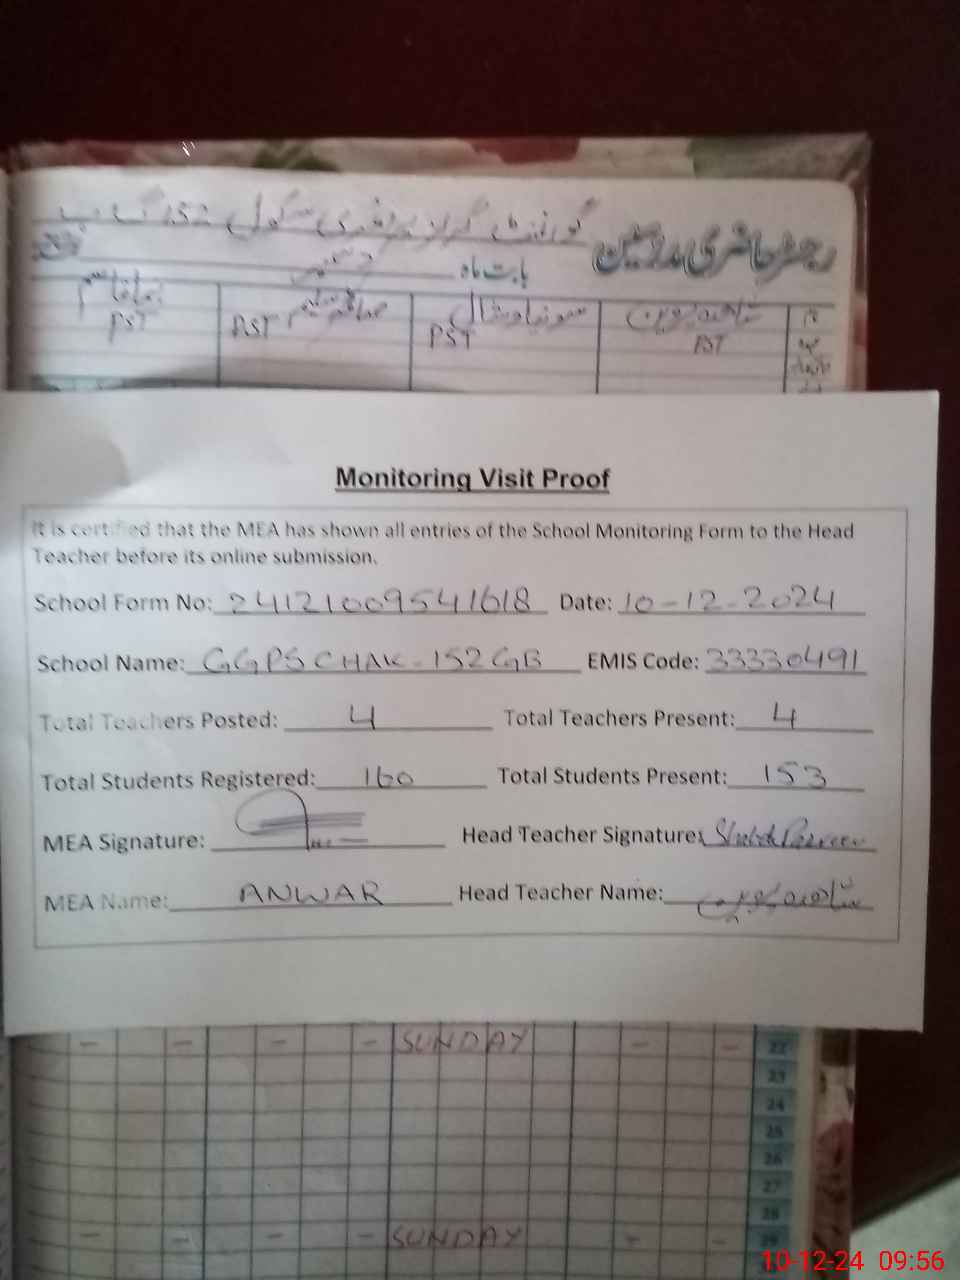 رجسٹر حاضری مدرسین گورنمنٹ گرلز پرائمری سکول 152 گ ب
بابت ماہ دسمبر
شاہدہ پروین سونیا وشال صائمہ سلیم
PST PST PST PST
Monitoring Visit Proof
It is certified that the MEA has shown all entries of the School Monitoring Form to the Head
Teacher before its online submission.
School Form No: 24121009541618 Date: 10-12-2024
School Name: GGPS CHAK-152GB EMIS Code: 33330491
Total Teachers Posted: 4 Total Teachers Present: 4
Total Students Registered: 160 Total Students Present: 153
MEA Signature: Head Teacher Signature:
MEA Name: ANWAR Head Teacher Name: شاھدہ پروین
SUNDAY 22
23
24
25
26
27
28
SUNDAY 29
10-12-24 09:56